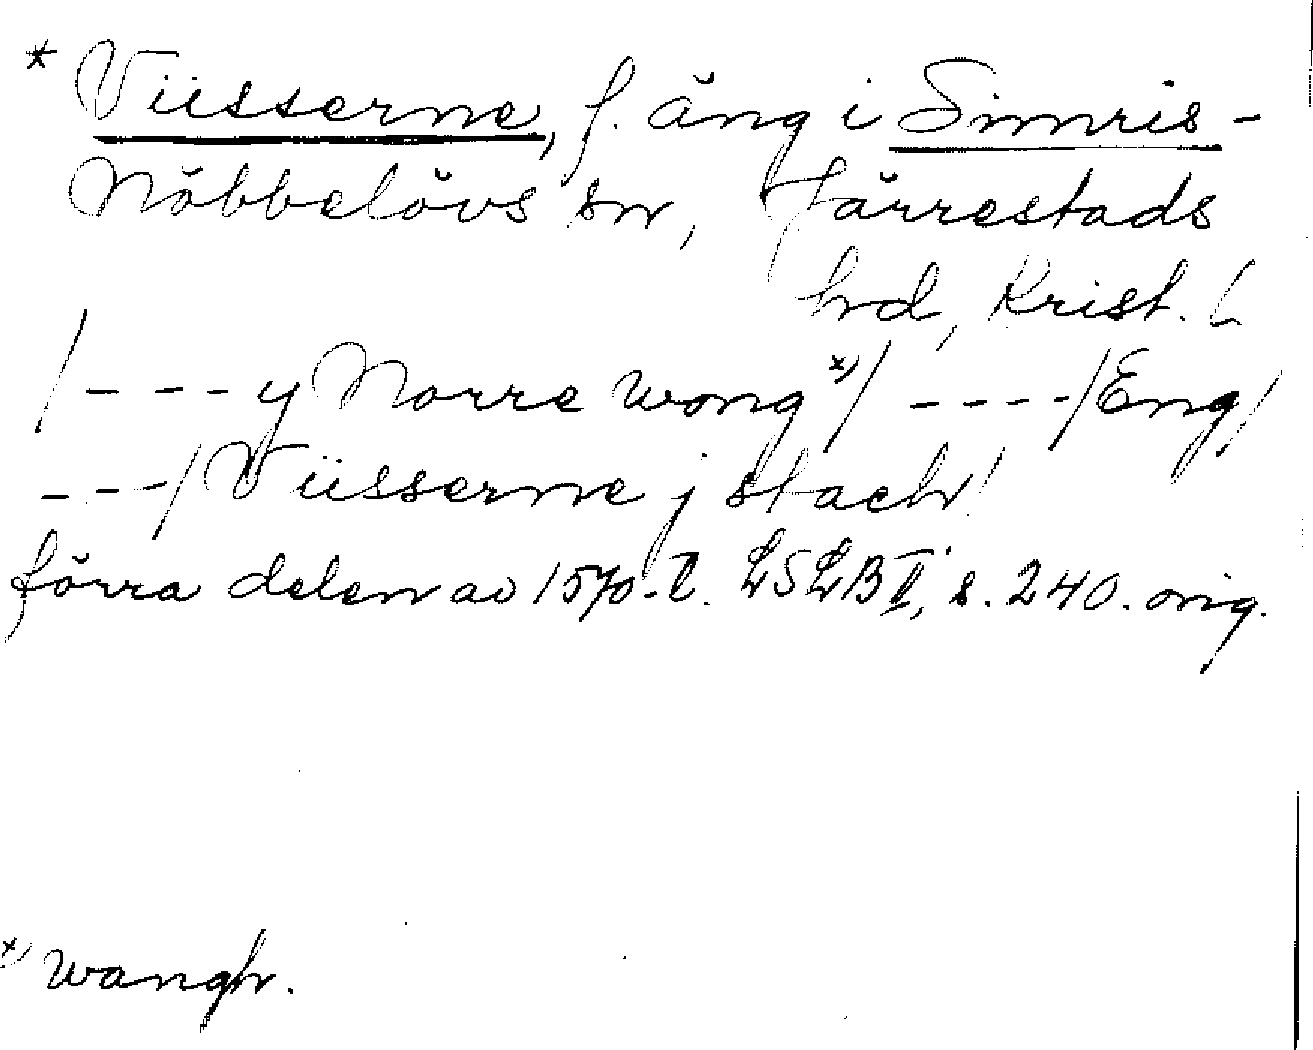 * Viisserne, f. äng i Simris-
Nöbbelövs sn, Järrestads
hd, Krist. l
/ - - - y Norre wong *) / - - - - / Eng /
- - - / Viisserne j stach /
förra delen av 1570-t. LSLB II, s. 240. orig.
*) wangh.